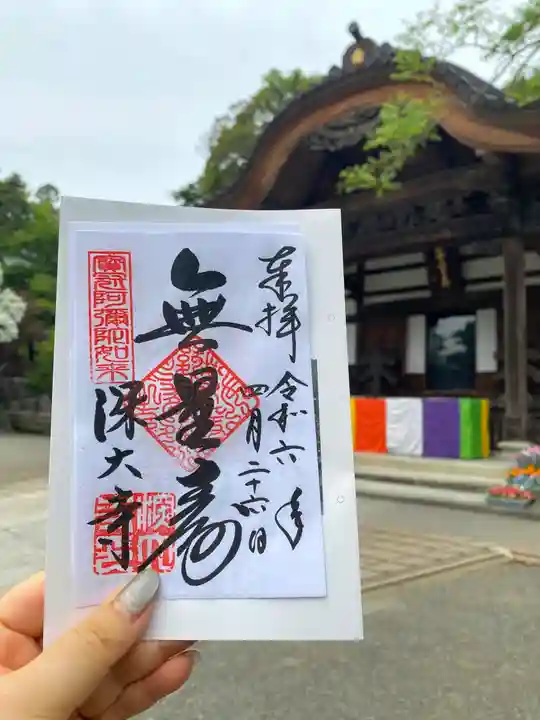 奉拝
令和六年
四月二十六日
無量壽
寶冠阿彌陀如来
深大寺